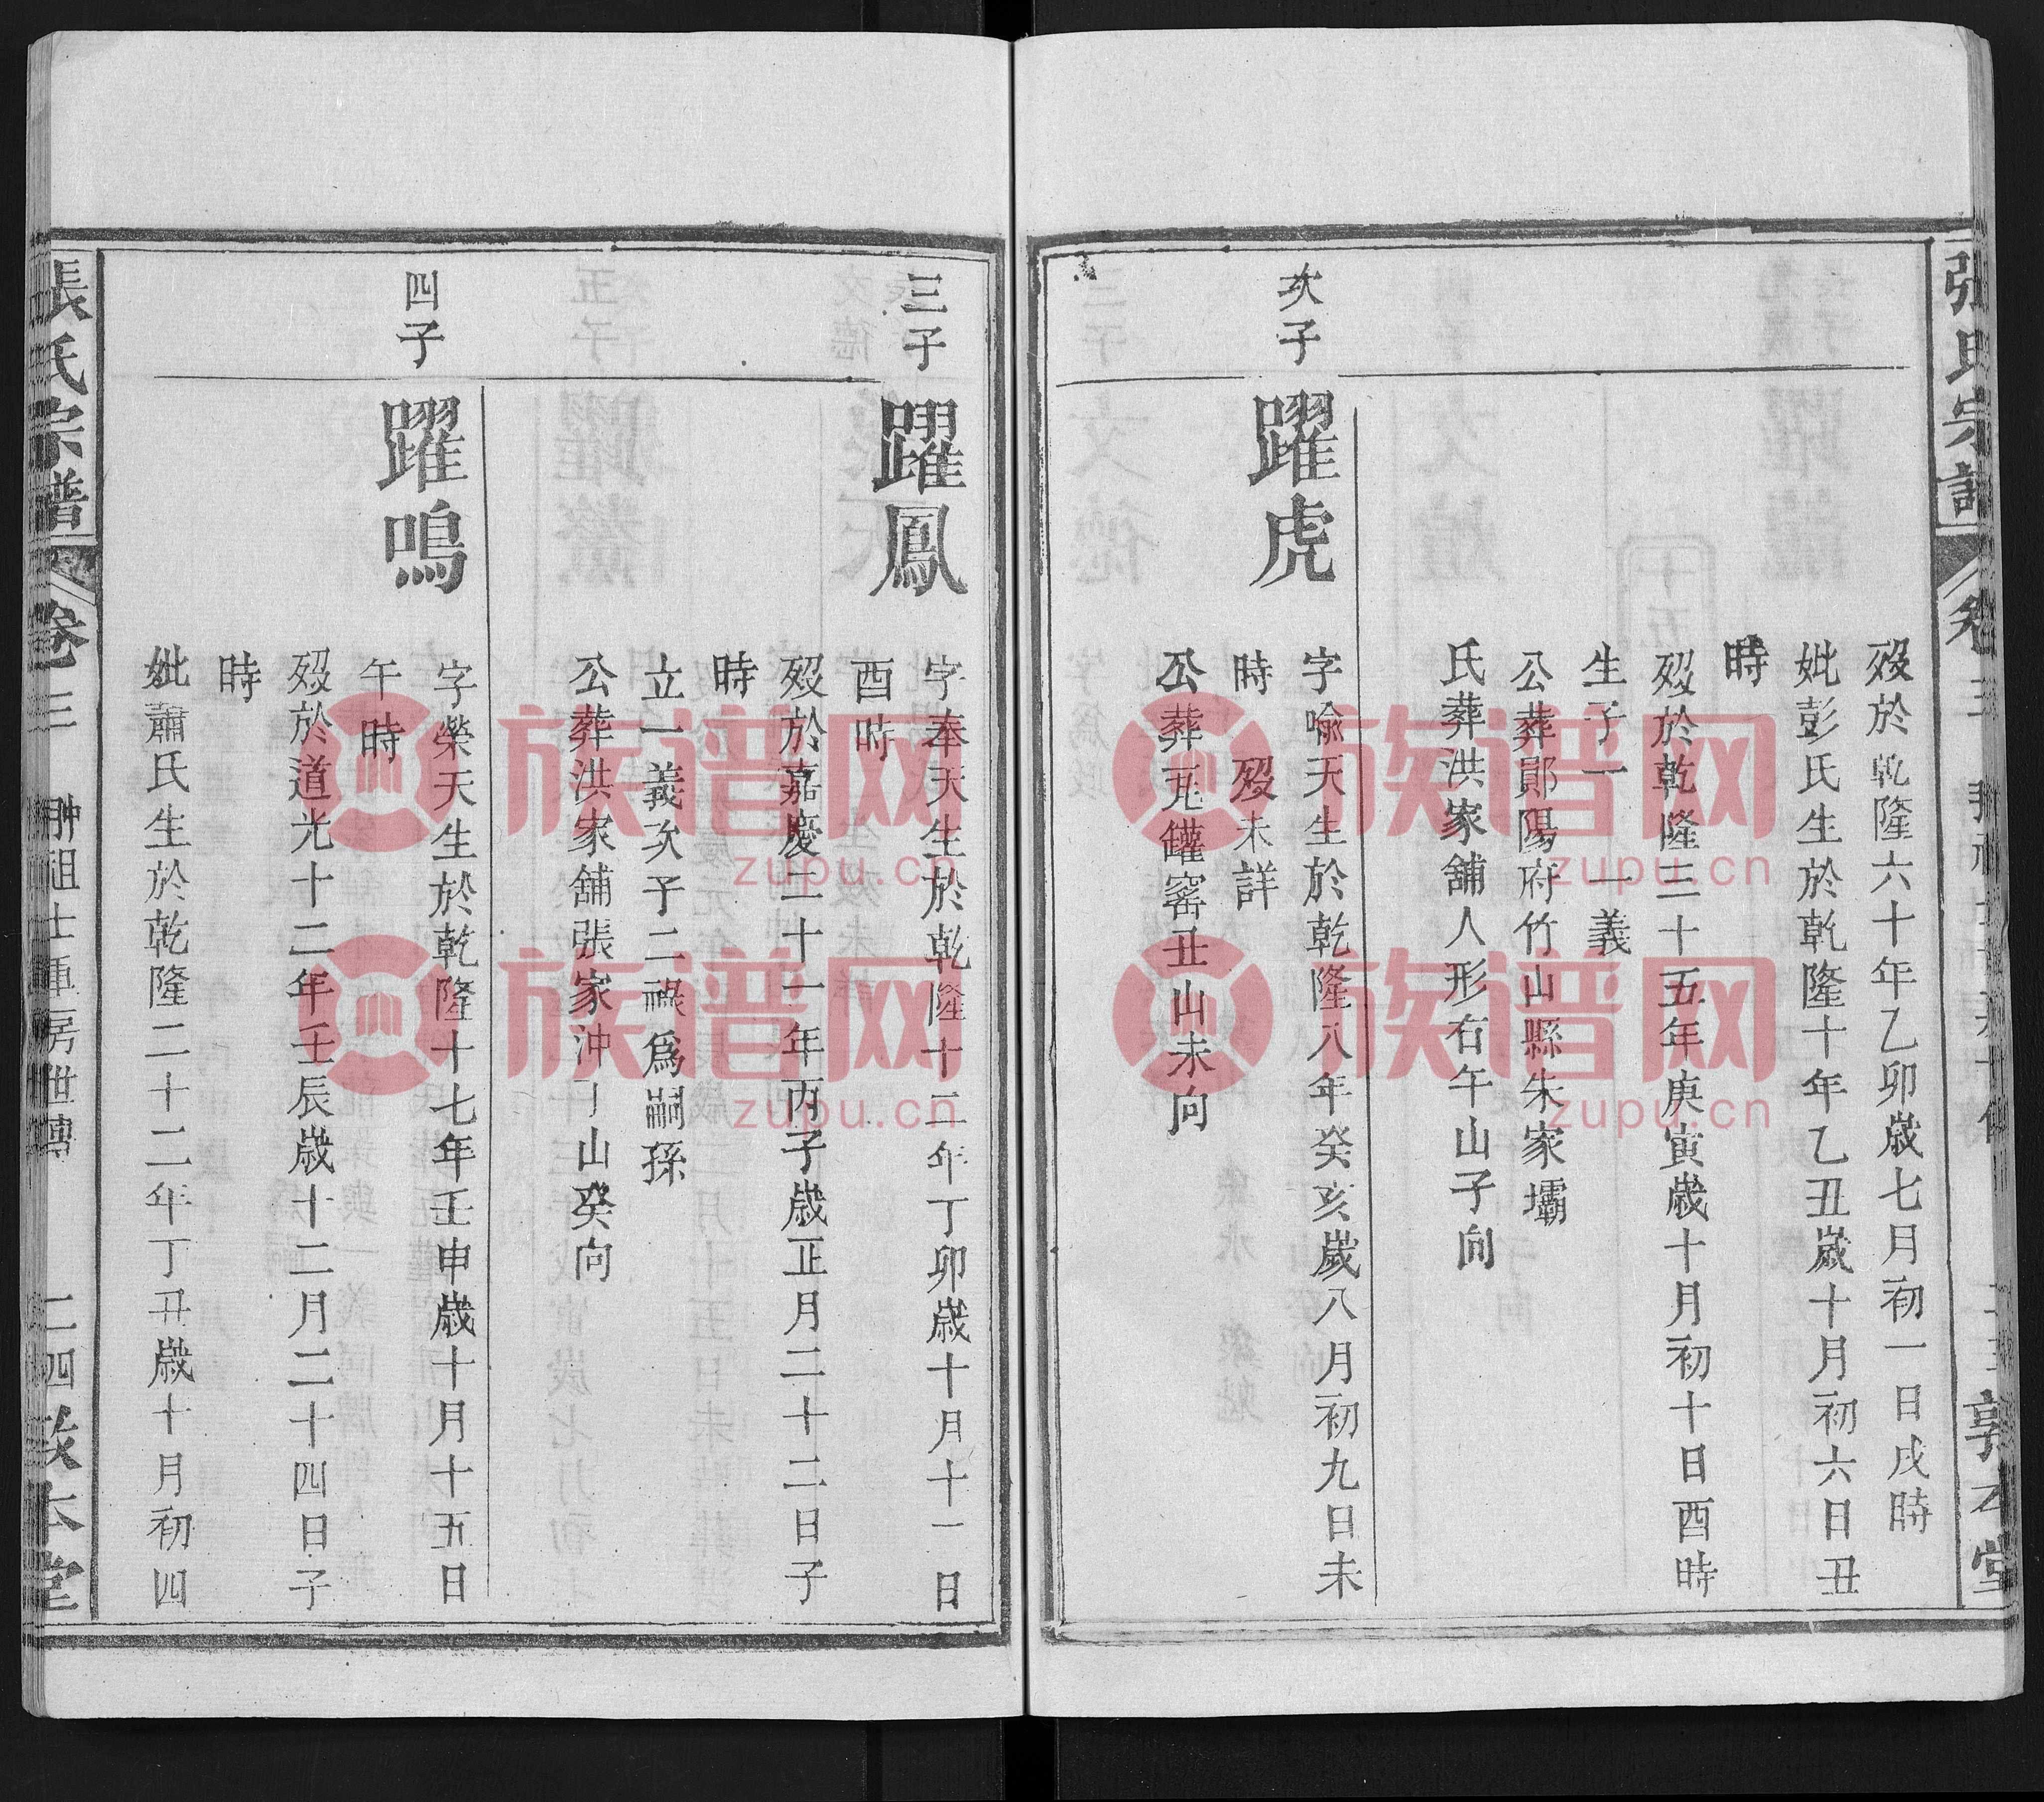 歿於乾隆六十年乙卯歲七月初一日戌時
妣彭氏生於乾隆十年乙丑歲十月初六日丑
時
歿於乾隆三十五年庚寅歲十月初十日酉時
生子一 一義
公葬鄖陽府竹山縣朱家壩
氏葬洪家舖人形右午山子向
次子
躍虎
字喩天生於乾隆八年癸亥歲八月初九日未
時 歿未詳
公葬瓦罐窰丑山未向
三子
躍鳳
字奉天生於乾隆十二年丁卯歲十月十一日
酉時
歿於嘉慶二十一年丙子歲正月二十二日子
時
立一義次子二禄爲嗣孫
公葬洪家舖張家沖丁山癸向
四子
躍鳴
字榮天生於乾隆十七年壬申歲十月十五日
午時
歿於道光十二年壬辰歲十二月二十四日子
時
妣蕭氏生於乾隆二十二年丁丑歲十月初四
張氏宗譜
卷三
二四
敦本堂
張氏宗譜
卷三
敦本堂
族谱网
zupu.cn
族谱网
zupu.cn
族谱网
zupu.cn
族谱网
zupu.cn